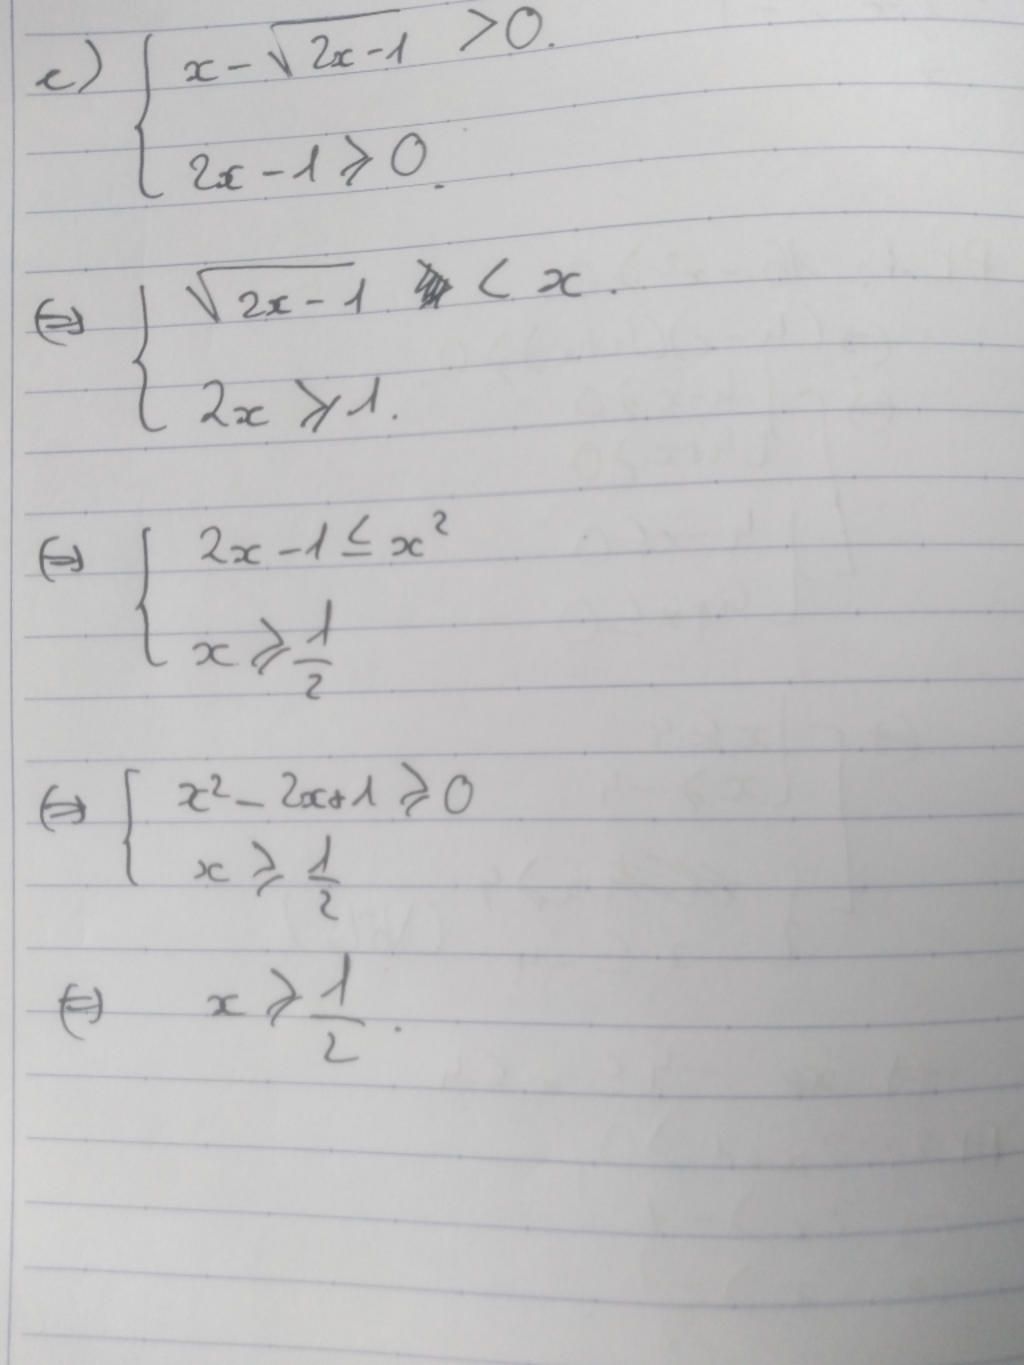 c) { x - √(2x-1) > 0.
2x - 1 ⩾ 0.
⇔ { √(2x-1) < x.
2x ⩾ 1.
⇔ { 2x - 1 ≤ x²
x ⩾ 1/2
⇔ { x² - 2x+1 ⩾ 0
x ⩾ 1/2
⇔ x ⩾ 1/2.